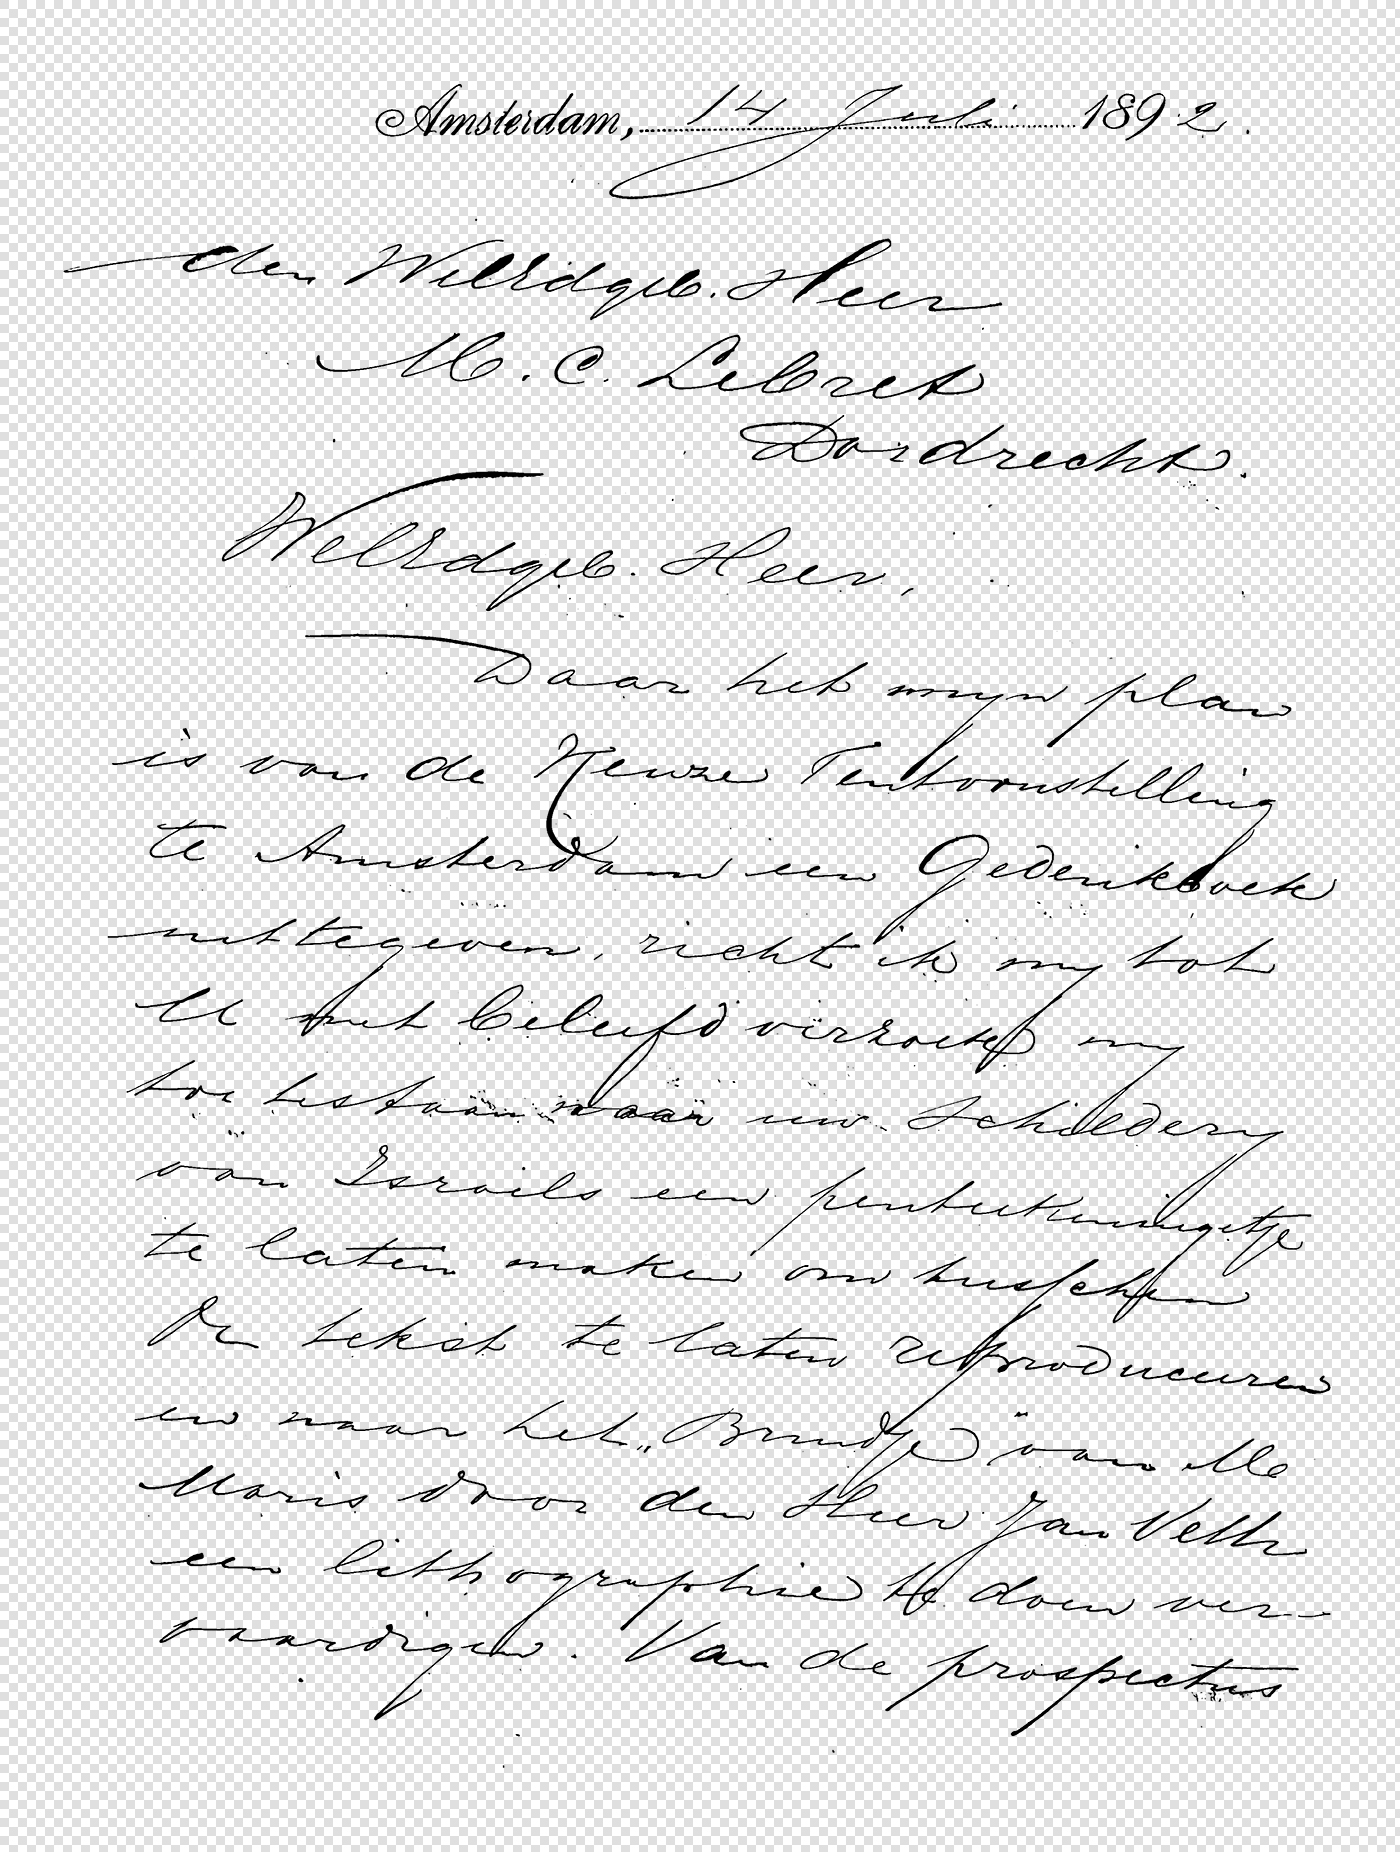 Amsterdam, 14 Juli 1892.
den WelEdgeb. Heer
M. C. Lebret
Dordrecht.
WelEdgeb. Heer,
Daar het mijn plan
is van de Keuze Tentoonstelling
te Amsterdam een Gedenkboek
uittegeven, richt ik mij tot
U met beleefd verzoek mij
toe testaan naar uw schilderij
van Israels een penteekeningetje
te laten maken om tusschen
den tekst te laten reproduceeren
en naar het „Bruidje" van M
Maris door den Heer Jan Veth
een lithographie te doen ver-
vaardigen. Van de prospectus